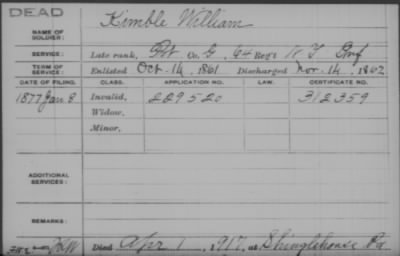 DEAD
NAME OF SOLDIER: Kimble William
SERVICE: Late rank, Pvt Co. G, 64 Reg't N. Y. Inf
TERM OF SERVICE: Enlisted Oct. 14, 1861 Discharged Nov. 14, 1862
DATE OF FILING. CLASS. APPLICATION NO. LAW. CERTIFICATE NO.
1877 Jan. 8 Invalid, 229520 312359
Widow,
Minor,
ADDITIONAL SERVICES:
REMARKS:
Died Apr 1, 1917, at Shinglehouse Pa